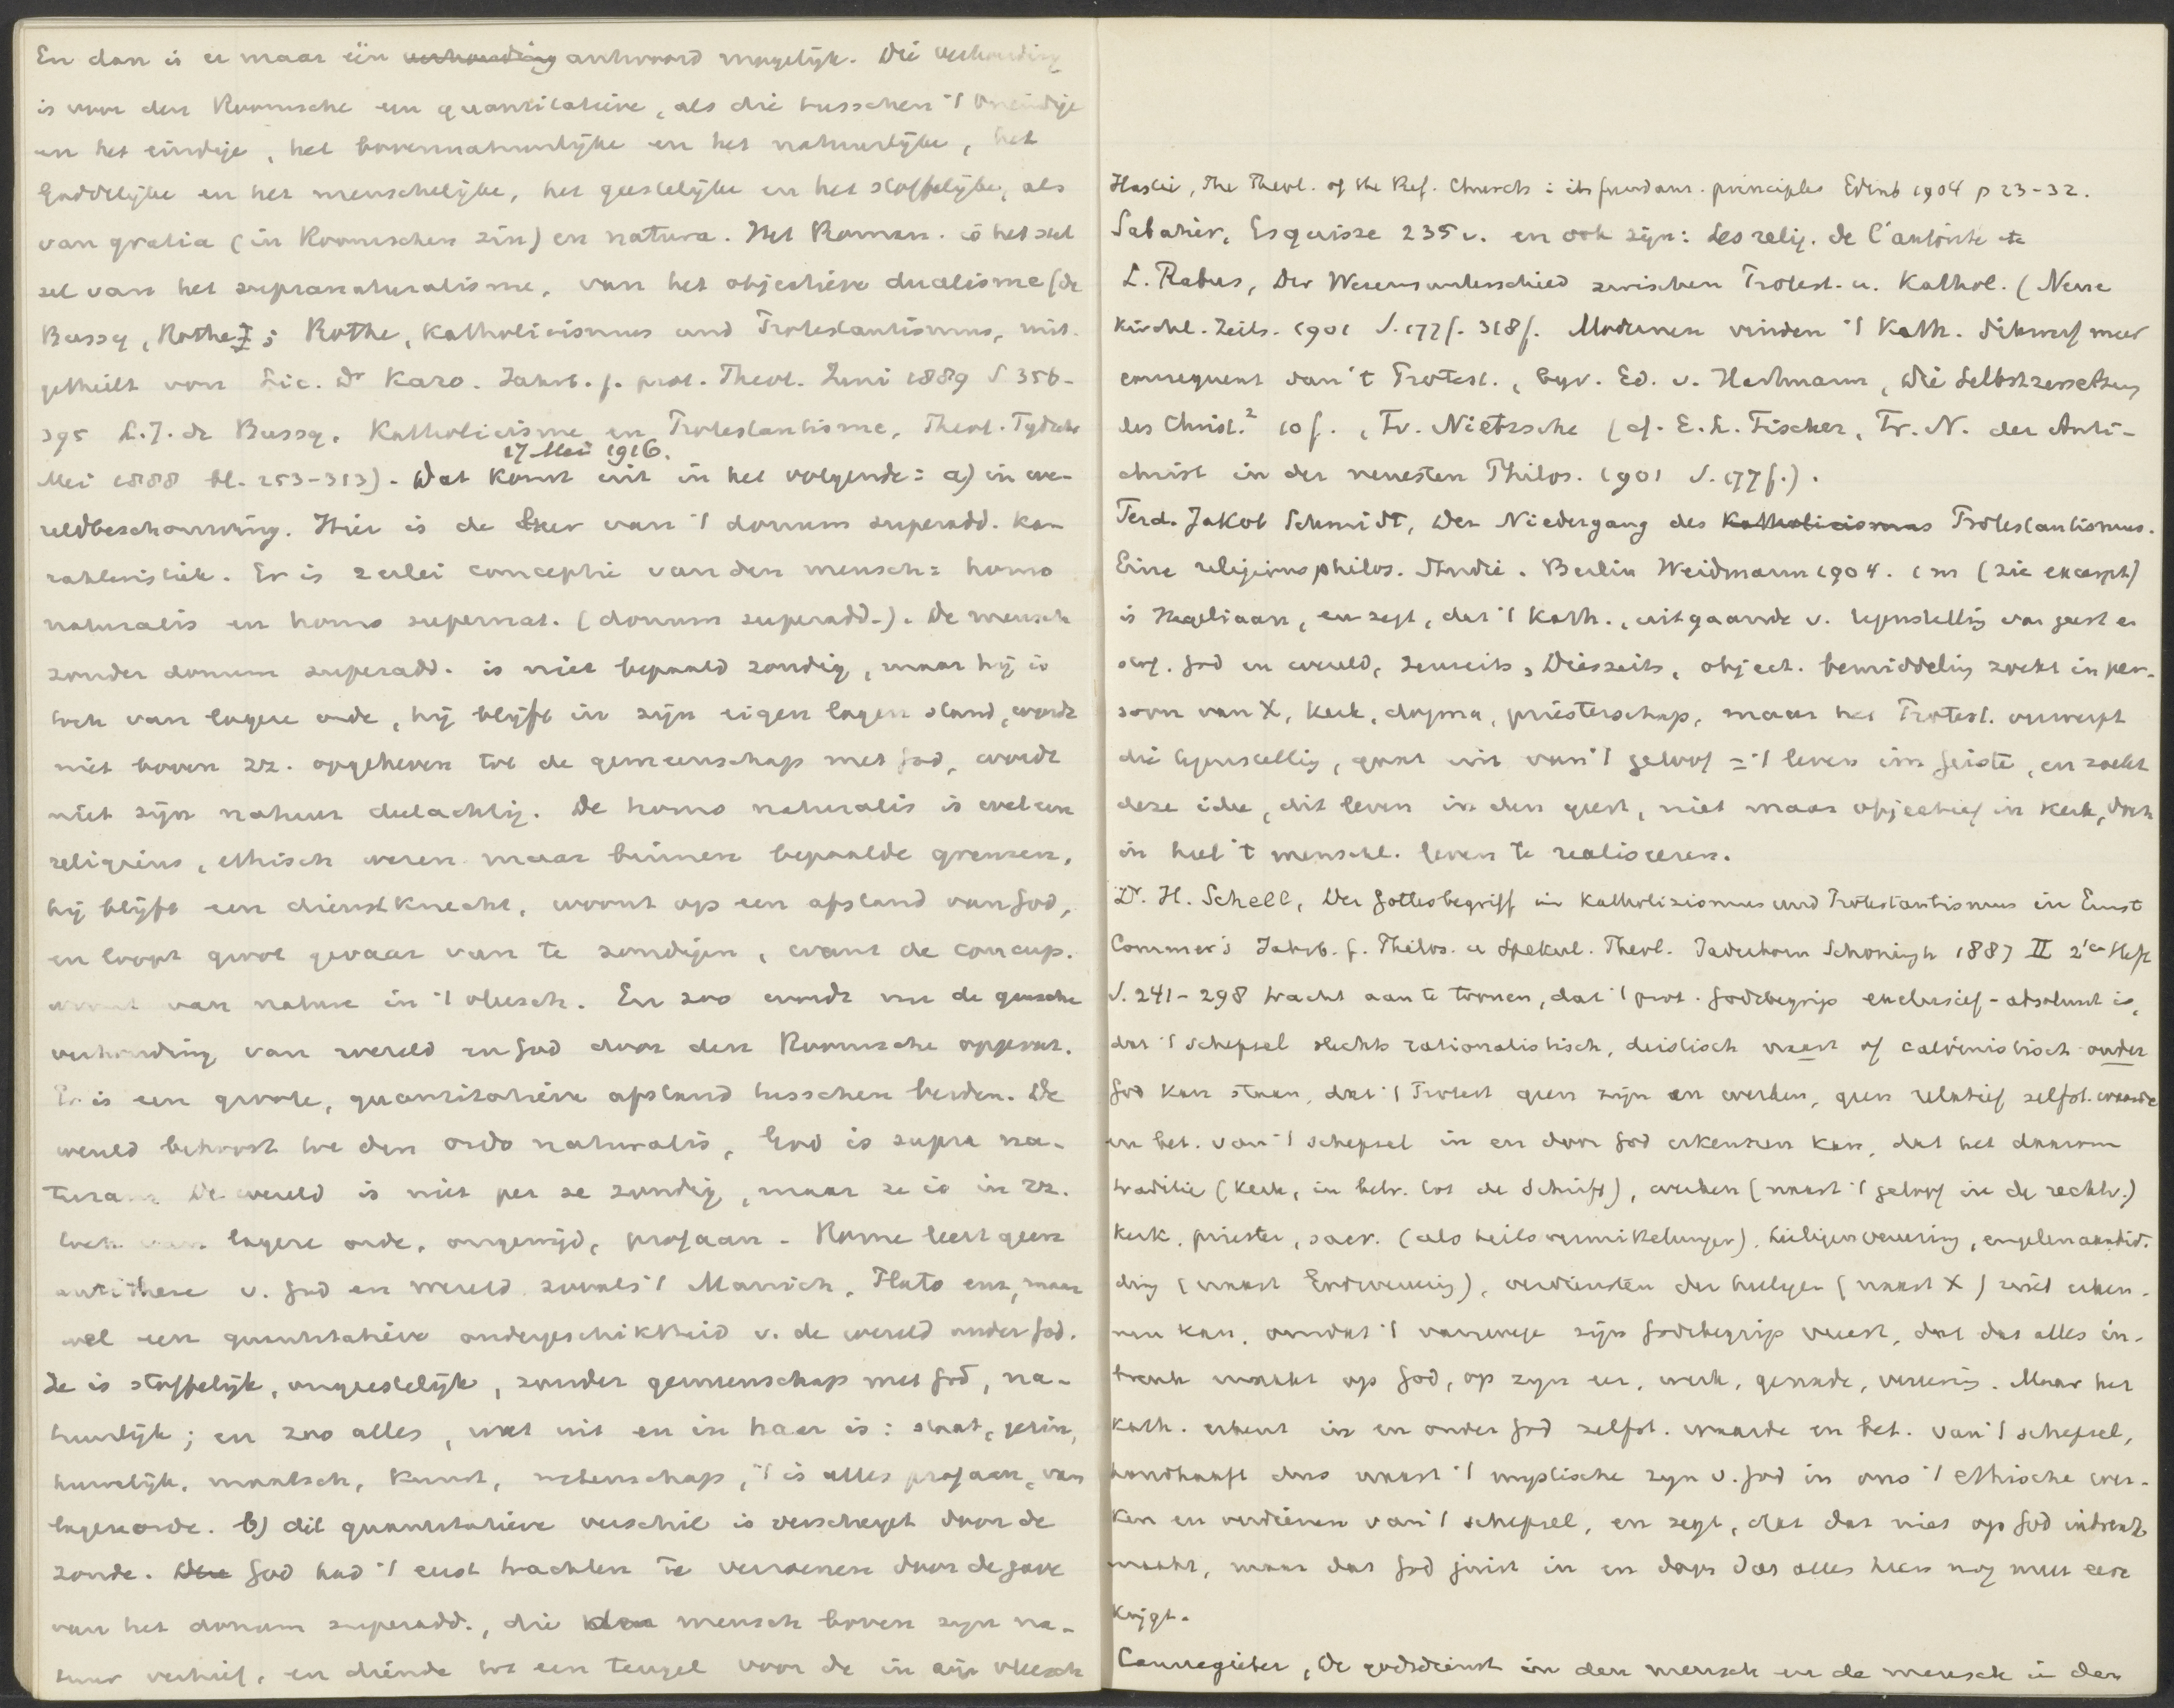 En dan is er maar één verhouding antwoord mogelijk. Die verhouding
is voor den Roomsche een quantitatieve, als die tusschen 't oneindige
en het eindige, het bovennatuurlijke en het natuurlijke, het
Goddelijke en het menschelijke, het geestelijke en het stoffelijke, als
van gratia (in Roomschen zin) en natura. Het Roman. is het stel
sel van het supranaturalisme, van het objectieve dualisme (de
Bussy, Rothe); Rothe, Katholicismus und Protestantismus, mit.
getheilt von Lic. Dr Karo. Jahrb. f. prot. Theol. Juni 1889 S 356-
395 L.J. de Bussy. Katholicisme en Protestantisme, Theol. Tydschr
17 Mei 1916.
Mei 1888 bl. 253-313). Dat komt uit in het volgende: a) in we-
reldbeschouwing. Hier is de leer van 't donum superadd. ka-
rakteristiek. Er is 2erlei conceptie van den mensch: homo
naturalis en homo supernat. (donum superadd.). De mensch
zonder donum superadd. is niet bepaald zondig, maar hij is
toch van lagere orde, hij blijft in zijn eigen lagen stand, wordt
niet boven zz. opgeheven tot de gemeenschap met God, wordt
niet zijn natuur deelachtig. De homo naturalis is wel een
religieus, ethisch wezen maar binnen bepaalde grenzen,
hij blijft een dienstknecht, woont op een afstand van God,
en loopt groot gevaar van te zondigen, want de concup.
woont van nature in 't vleesch. En zoo wordt nu de gansche
verhouding van wereld en God door den Roomsche opgevat.
Er is een groote, quantitatieve afstand tusschen beiden. De
wereld behoort tot den ordo naturalis, God is supra na-
turam. De wereld is niet per se zondig, maar ze is in zz.
toch van lagere orde, ongewijd, profaan. Rome leert geen
antithese v. God en wereld zooals 't Manich, Plato enz, maar
wel een quantitatieve ondergeschiktheid v. de wereld onder God.
Ze is stoffelijk, ongeestelijk, zonder gemeenschap met God, na-
tuurlijk; en zoo alles, wat uit en in haar is: staat, gezin,
huwelijk, maatsch, kunst, wetenschap, 't is alles profaan, van
lagere orde. b) dit quantitatieve verschil is verscherpt door de
zonde. Den God had 't eerst trachten te verzoenen door de gave
van het donum superadd., die den mensch boven zijn na-
tuur verhief, en diende tot een teugel voor de in zijn vleesch
Hastie, The Theol. of the Ref. Church: its fundam. principles Edinb 1904 p 23-32.
Sabatier, Esquisse 235 v. en ook zijn: Les relig. de l'autorité etc
L. Rabus, Der Wesensunterschied zwischen Protest. u. Kathol. (Neue
Kirchl. Zeits. 1901 S. 177f. 318f. Modernen vinden 't Kath. dikwerf meer
consequent dan 't Protest., bijv. Ed. v. Hartmann, Die Selbstzersetzung
des Christ.² 10f., Fr. Nietzsche (cf. E.L. Fischer, Fr. N. der Anti-
christ in der neuesten Philos. 1901 S. 177f.).
Ferd. Jakob Schmidt, Der Niedergang des Katholicismus Protestantismus.
Eine religionsphilos. Studie. Berlin Weidmann 1904. (zie excerpt)
is Hegeliaan, en zegt, dat 't Kath., uitgaande v. tegenstelling van geest en
stof. God en wereld, Jenseits, Diesseits, object. bemiddeling zoekt in per-
soon van X, kerk, dogma, priesterschap, maar het Protest. verwerpt
die tegenstelling, gaat uit van 't geloof = 't leven im Geiste, en zoekt
deze idee, dit leven in den geest, niet maar objectief in kerk, doch
in heel 't menschl. leven te realiseeren.
Dr. H. Schell, Der Gottesbegriff im Katholizismus und Protestantismus in Ernst
Commer's Jahrb. f. Philos. u Spekul. Theol. Paderborn Schöningh 1887 II 2es Heft
S. 241-298 tracht aan te toonen, dat 't prot. Godsbegrip exclusief-absoluut is,
dat 't schepsel slechts rationalistisch, deistisch naast of calvinistisch onder
God kan staan, dat 't Protest geen zijn en werken, geen relatief zelfst. waarde
en bet. van 't schepsel in en door God erkennen kan, dat het daarom
traditie (kerk, in betr. tot de Schrift), werken (naast 't geloof in de rechtv.)
kerk, priester, sacr. (als heilsvermittelungen), heiligenvereering, engelenaanbid.
ding (naast Godsvereering), verdiensten der heiligen (naast X) niet erken-
nen kan, omdat 't vanwege zijn Godsbegrip vreest, dat dat alles in-
breuk maakt op God, op zijn eer, werk, genade, vereering. Maar het
Kath. erkent in en onder God zelfst. waarde en bet. van 't schepsel,
handhaaft dus naast 't mystische zijn v. God in ons 't ethische wer-
ken en verdienen van 't schepsel, en zegt, dat dat niet op God inbreuk
maakt, maar dat God juist in en door dat alles heen nog meer eere
krijgt.
Cannegieter, De godsdienst in den mensch en de mensch in den